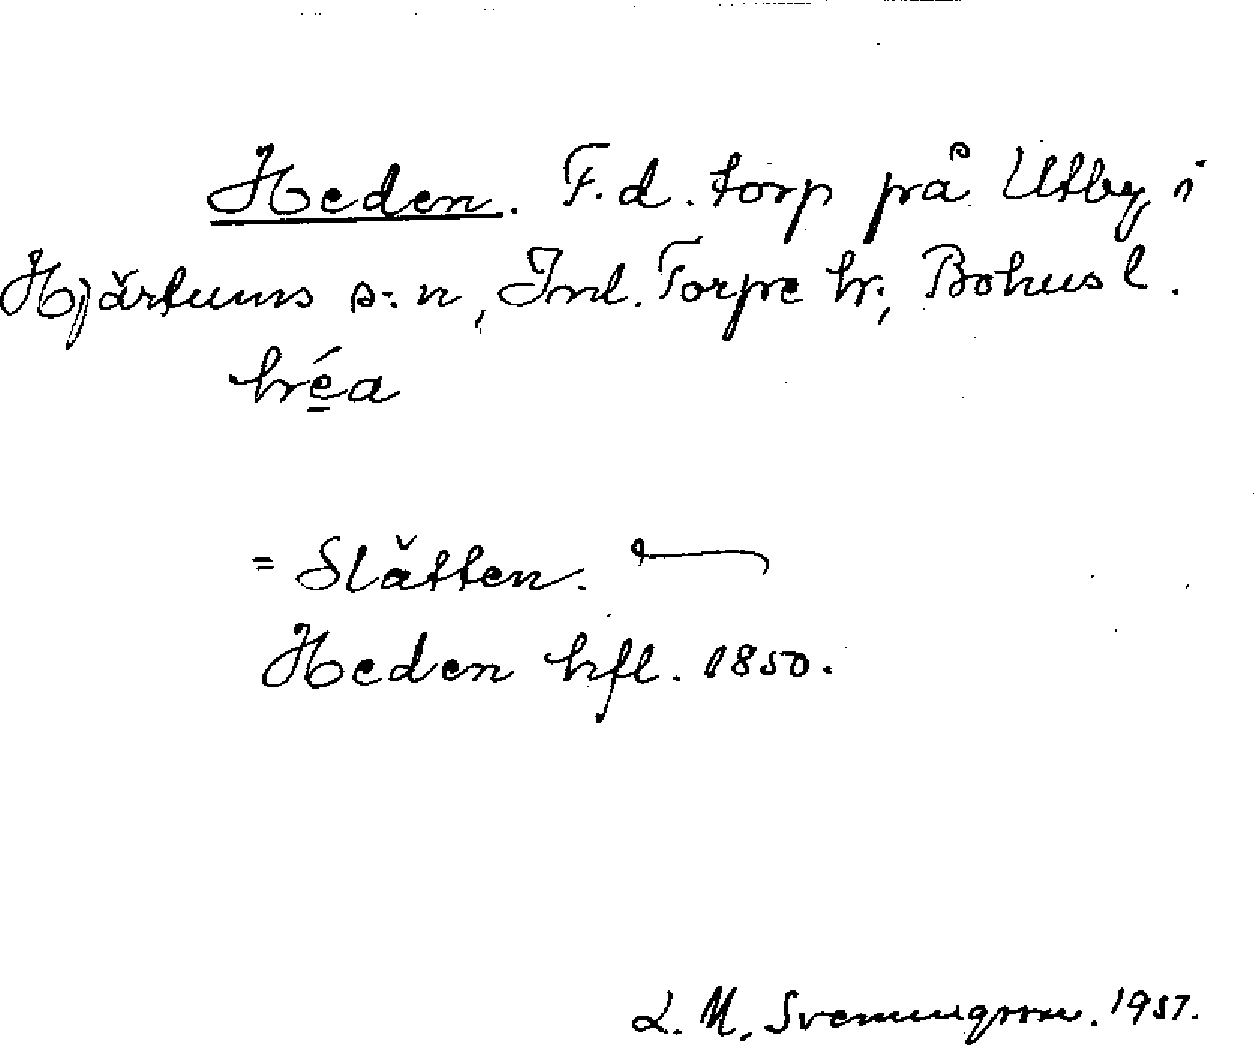 Heden. F.d. torp på Utby, i
Hjärtums s:n, Inl. Torpe hr., Bohusl.
hré̲a
= Slätten.
Heden hfl. 1850.
L. M. Svenungsson. 1957.